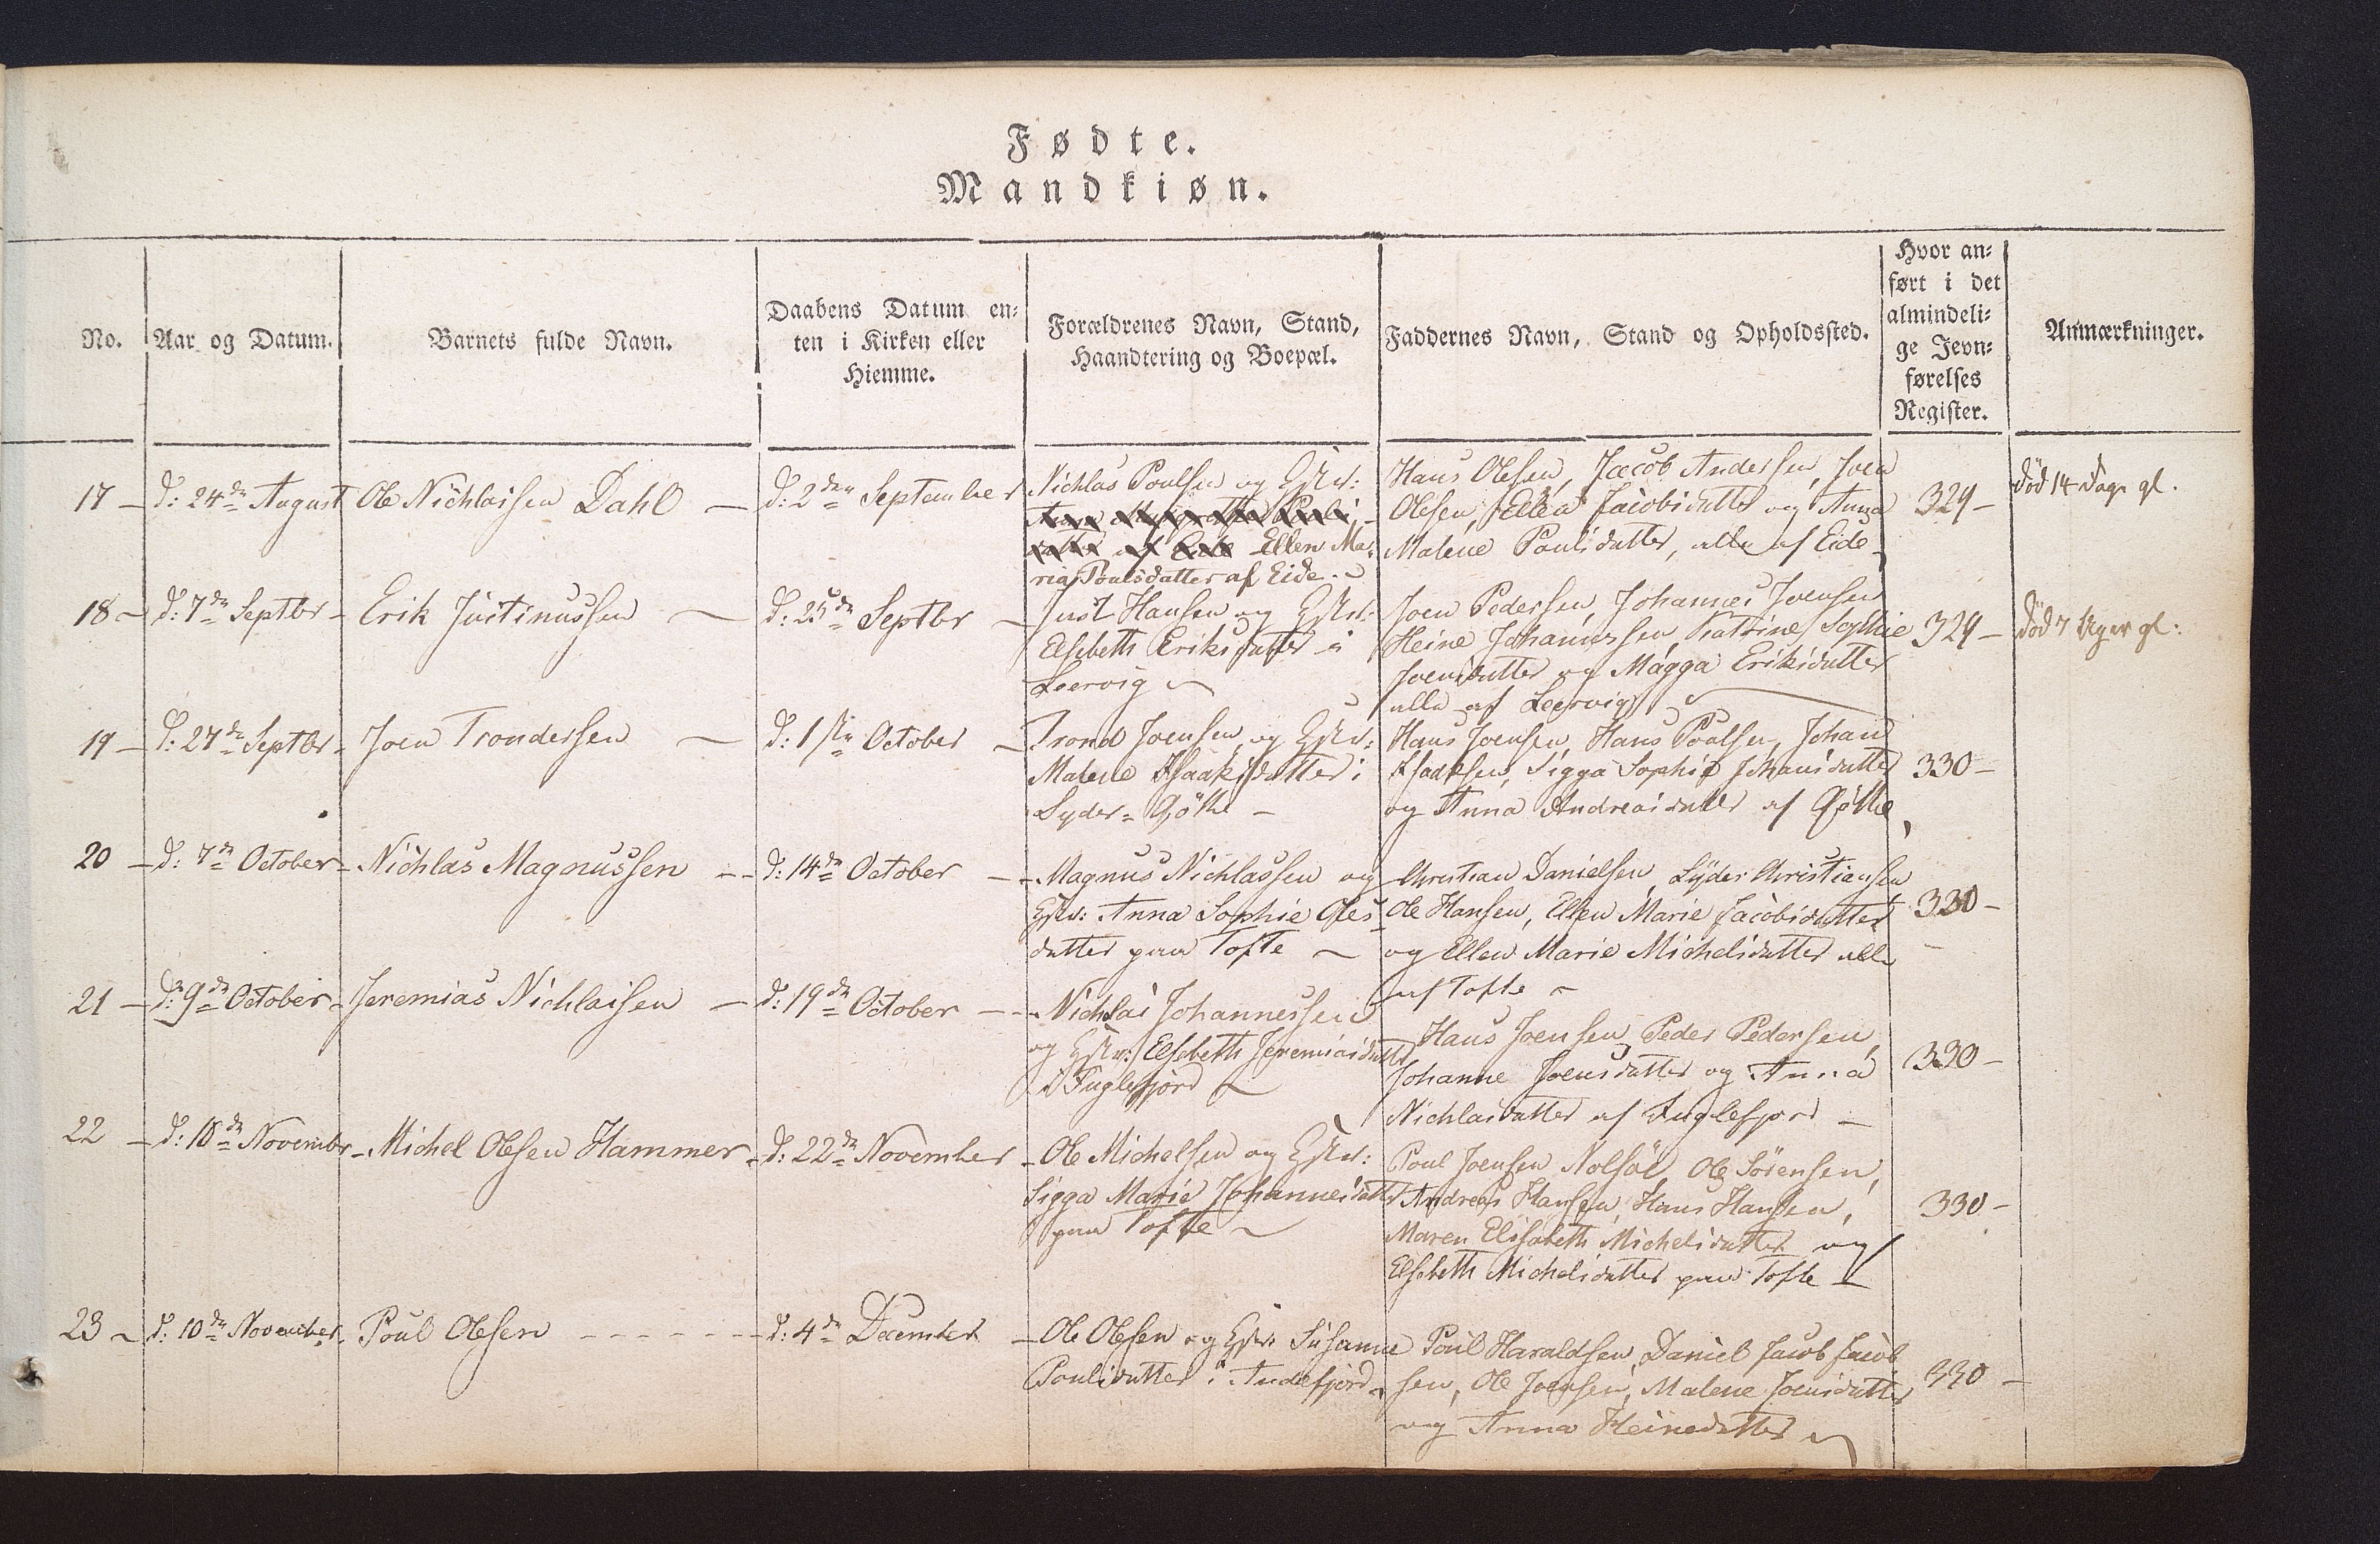 Fødte.
Mandkiøn.
No.
Aar og Datum.
Barnets fulde Navn.
Daabens Datum en-
ten i Kirken eller
Hiemme.
Forældrenes Navn, Stand,
Haandtering og Boepæl.
Faddernes Navn, Stand og Opholdssted.
Hvor an-
ført i det
almindeli-
ge Jevn-
førelses
Register.
Anmærkninger.
17 –
d: 24de August
Ole Nichlaisen Dahl –
d: 2den September
Nichlas Poulsen og Hstr:
Ellen Ma-
ria Poulsdatter af Eide.
Hans Olesen, Jacob Andersen, Joen
Olesen, Ellen Jacobsdatter og Anna
Malene Poulsdatter, alle af Eide
329 –
død 14 Dage gl.
18 –
d: 7de Septbr –
Erik Justinussen –
d: 25de Septbr –
Just Hansen og Hstr:
Elsebeth Eriksdatter i
Leervig
Joen Pedersen, Johannes Joensen
Heine Johannessen Katrine Sophie
Joensdatter og Magga Eriksdatter
alle af Leervig
329 –
død 7 Uger gl:
19 –
d: 27de Septbr –
Joen Trondersen –
d: 1ste October –
Trond Joensen og Hstr:
Malene Isaaksdatter i
Syder-Gøthe –
Hans Joensen, Hans Poulsen, Johan
Isaaksen, Sigga Sophie Johansdatter
og Anna Andreasdatter af Gøthe
330 –
20 –
d: 7de October –
Nichlas Magnussen –
d: 14de October –
Magnus Nichlassen og
Hstr: Anna Sophie Oles-
datter paa Tofte –
Christian Danielsen, Syder Christiansen
Ole Hansen, Ellen Marie Jacobsdatter
og Ellen Marie Michelsdatter alle
af Tofte –
330 –
21 –
d: 9de October –
Jeremias Nichlaisen –
d: 19de October –
Nichlai Johannessen
og Hstr: Elsebeth Jeremiasdatter
i Fuglefjord
Hans Joensen, Peder Pedersen,
Johanne Joensdatter og Anna
Nichlaidatter af Fuglefjord –
330 –
22 –
d: 18de Novembr –
Michel Olesen Hammer –
d: 22de November
Ole Michelsen og Hstr:
Sigga Marie Johannesdatter
paa Tofte –
Poul Joensen Nolsøe, Ole Sörensen,
Andreas Hansen, Hans Hansen,
Maren Elisabeth Michelsdatter og
Elsebeth Michelsdatter paa Tofte
330 –
23 –
d: 10de November –
Poul Olesen –
d: 4de December
Ole Olesen og Hstr: Susanne
Poulsdatter i Andefjord
Poul Haraldsen, Daniel Jacob Jacob-
sen, Ole Joensen, Malene Joensdatter
og Anna Heinesdatter
330 –